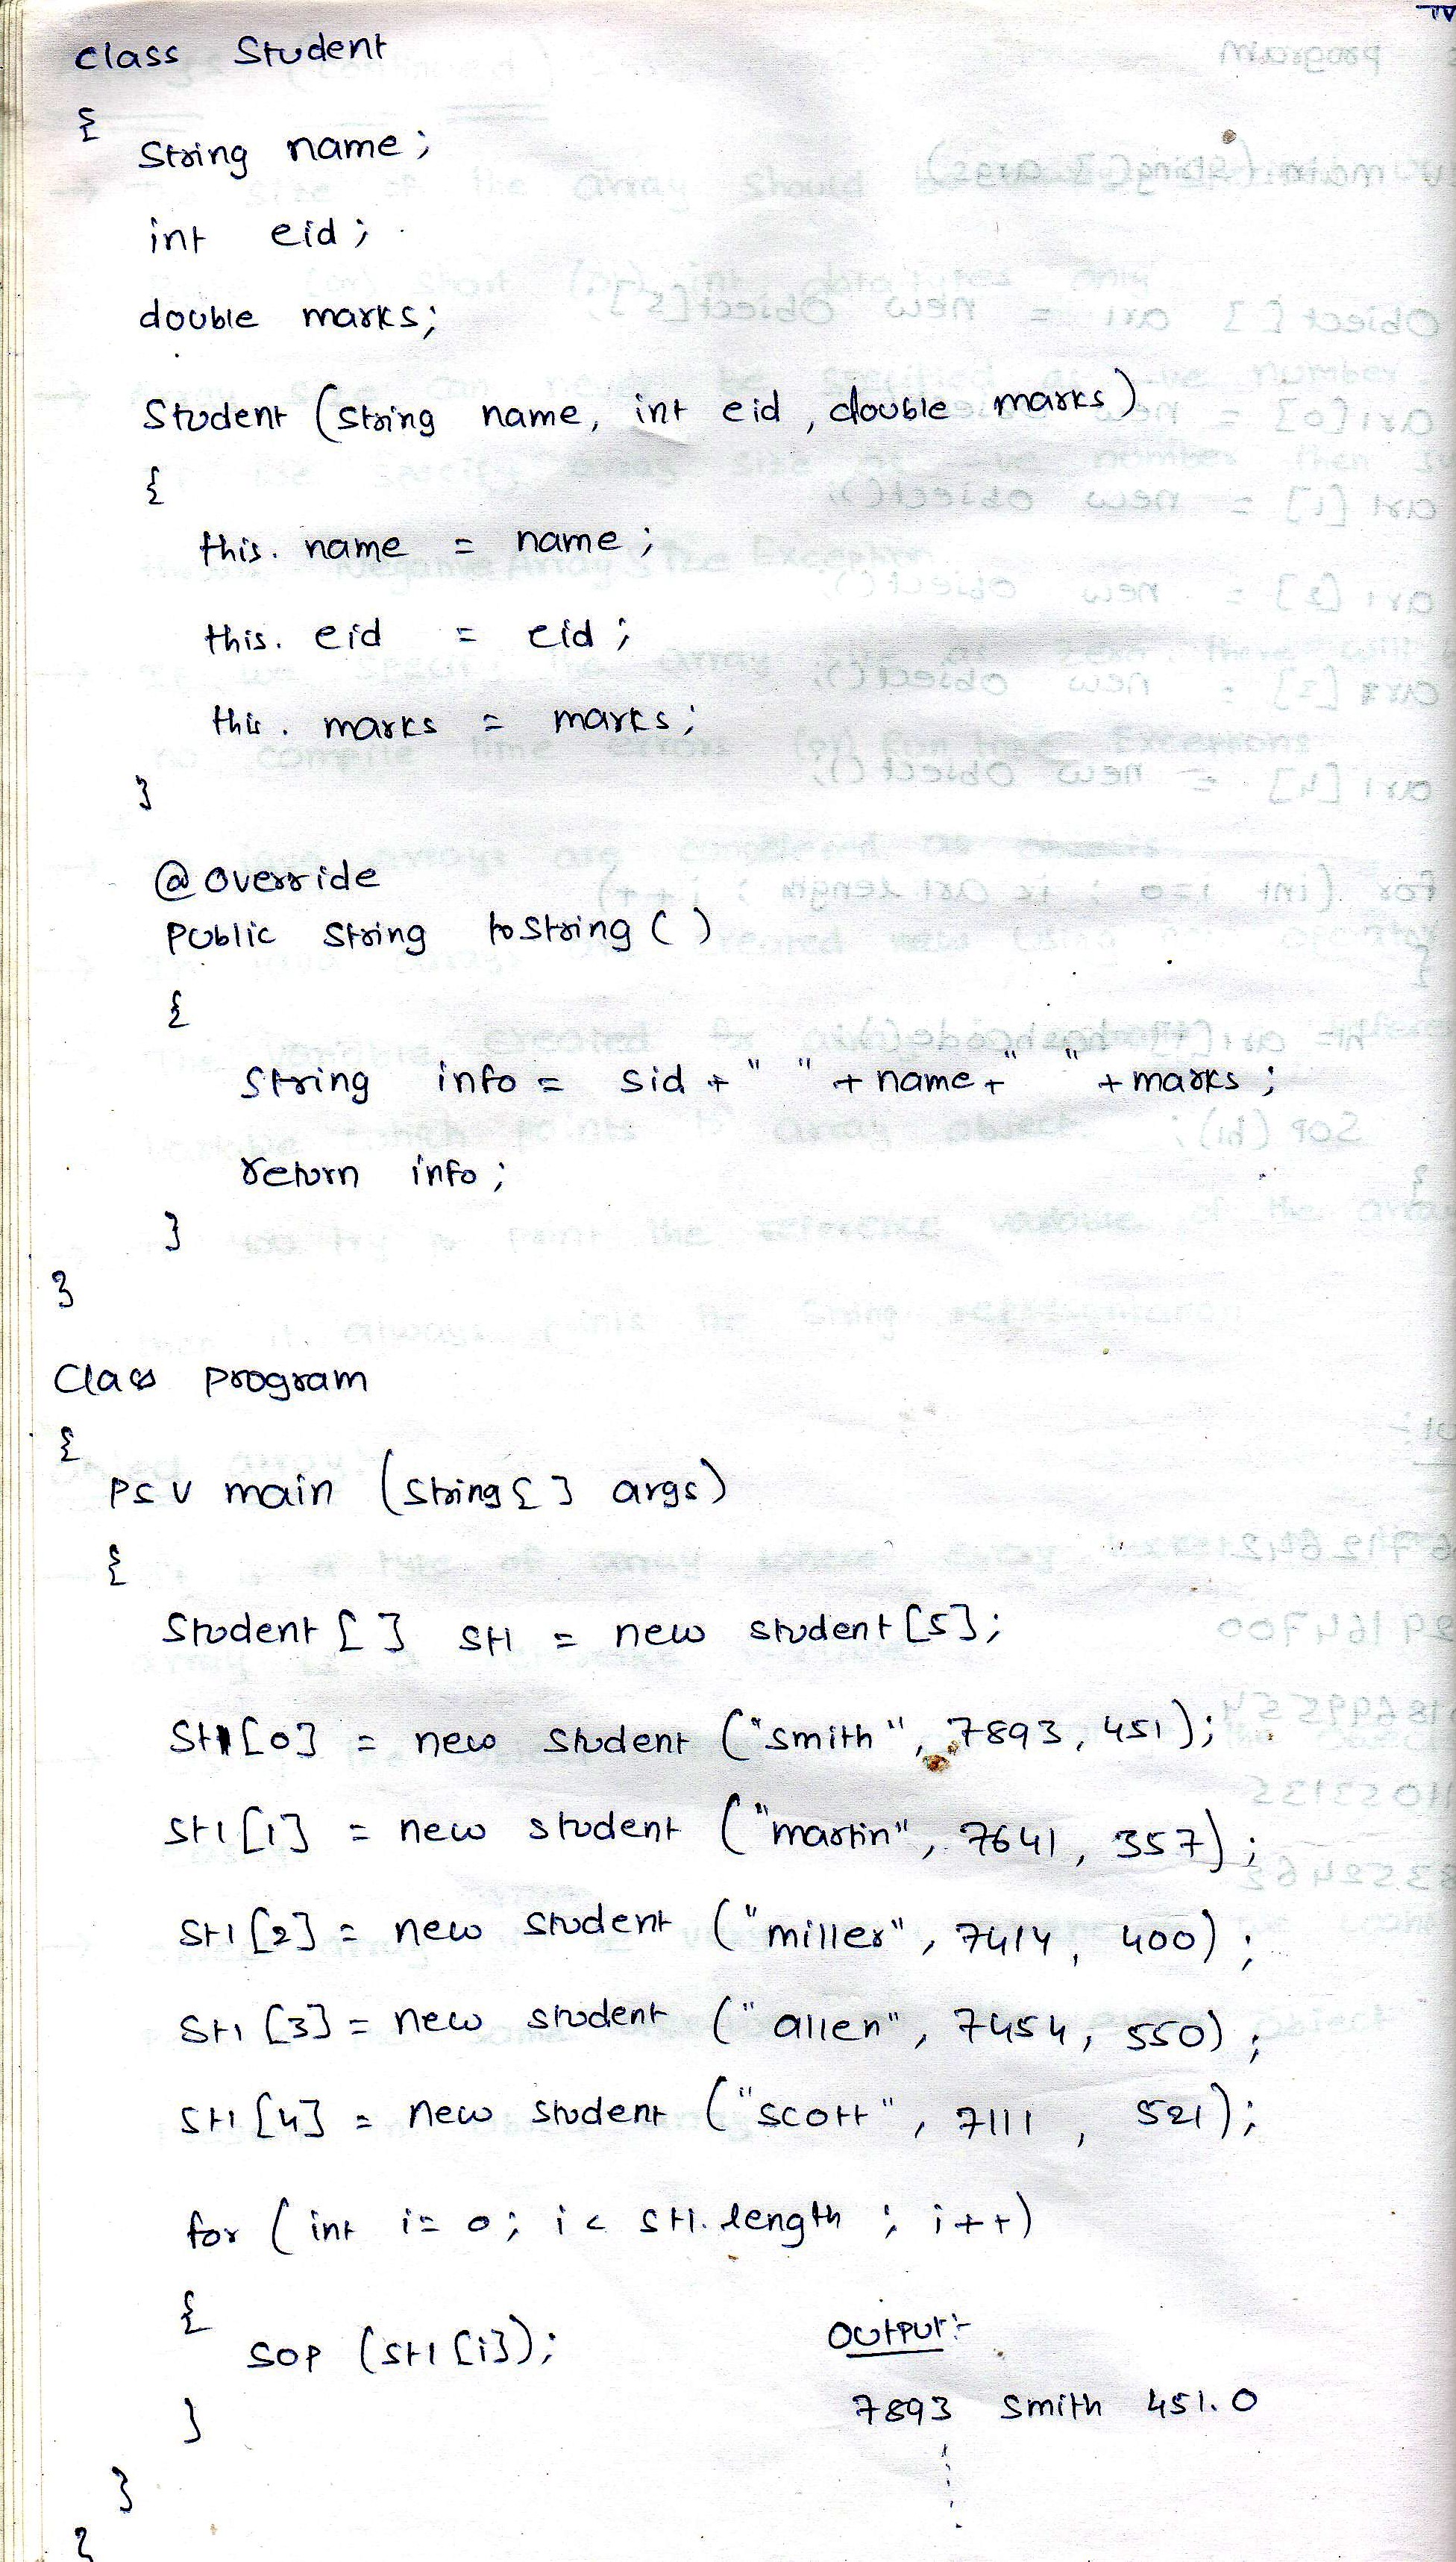 class Student
{
String name;
int eid;
double marks;
Student (String name, int eid, double marks)
{
this. name = name;
this. eid = eid;
this. marks = marks;
}
@override
Public String toString ( )
{
String info = sid + " " + name + " " + marks ;
return info ;
}
}
Class program
{
PSV main (String[ ] args)
{
Student [ ] st1 = new student [5];
St1[0] = new student ("smith", 7893, 451);
st1 [1] = new student ("martin", 7641, 357);
st1 [2] = new student ("miller", 7414, 400);
st1 [3] = new student ("allen", 7454, 550);
st1 [4] = new student ("scott", 7111, 521);
for (int i= 0; i < st1.length ; i++)
{
SOP (st1 [i]);
}
Output:-
7893 Smith 451.0
}
}